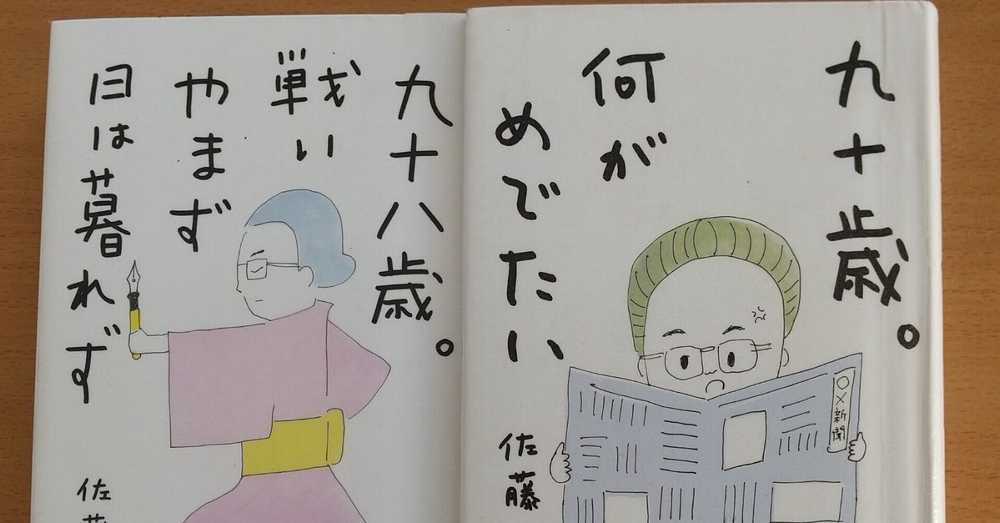 九十歳。
何が
めでたい
佐藤
○×新聞
九十八歳。
戦い
やまず
日は暮れず
佐